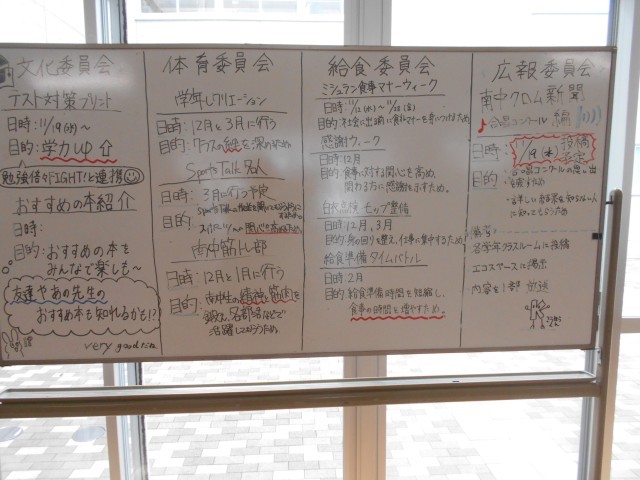 文化委員会
テスト対策プリント
日時: 11/19(水)~
目的: 学力up
勉強倍々FIGHT!と連携
おすすめの本紹介
日時:
目的: おすすめの本を
みんなで楽しも~
友達やあの先生の
おすすめ本も知れるかも!?
very good
体育委員会
学年レクリエーション
日時: 12月と3月に行う
目的: クラスの絆を深める
Sports Talk
日時: 3月に行う予定
目的:
南中筋トレ部
日時: 12月と1月に行う
目的: 南中生の精神、筋肉を
鍛え、各部活などで
活躍してもらうため。
給食委員会
ミシュラン食事マナーウィーク
日時: 11/12(水)~11/28(金)
目的: 社会に出る前に食事マナーを身につけるため
感謝ウィーク
日時: 12月
目的: 食事に対する関心を高め、
関わる方に感謝を示すため。
白衣点検、モップ整備
日時: 12月、3月
目的: 身の回りを整え、仕事に集中するため
給食準備タイムバトル
日時: 2月
目的: 給食準備時間を短縮し、
食事の時間を増やすため。
広報委員会
南中クロム新聞
合唱コンクール編
日時: 11/19(水) 投稿予定
目的
備考
各学年クラスルームに投稿
エコスペースに掲示
内容を1部放送